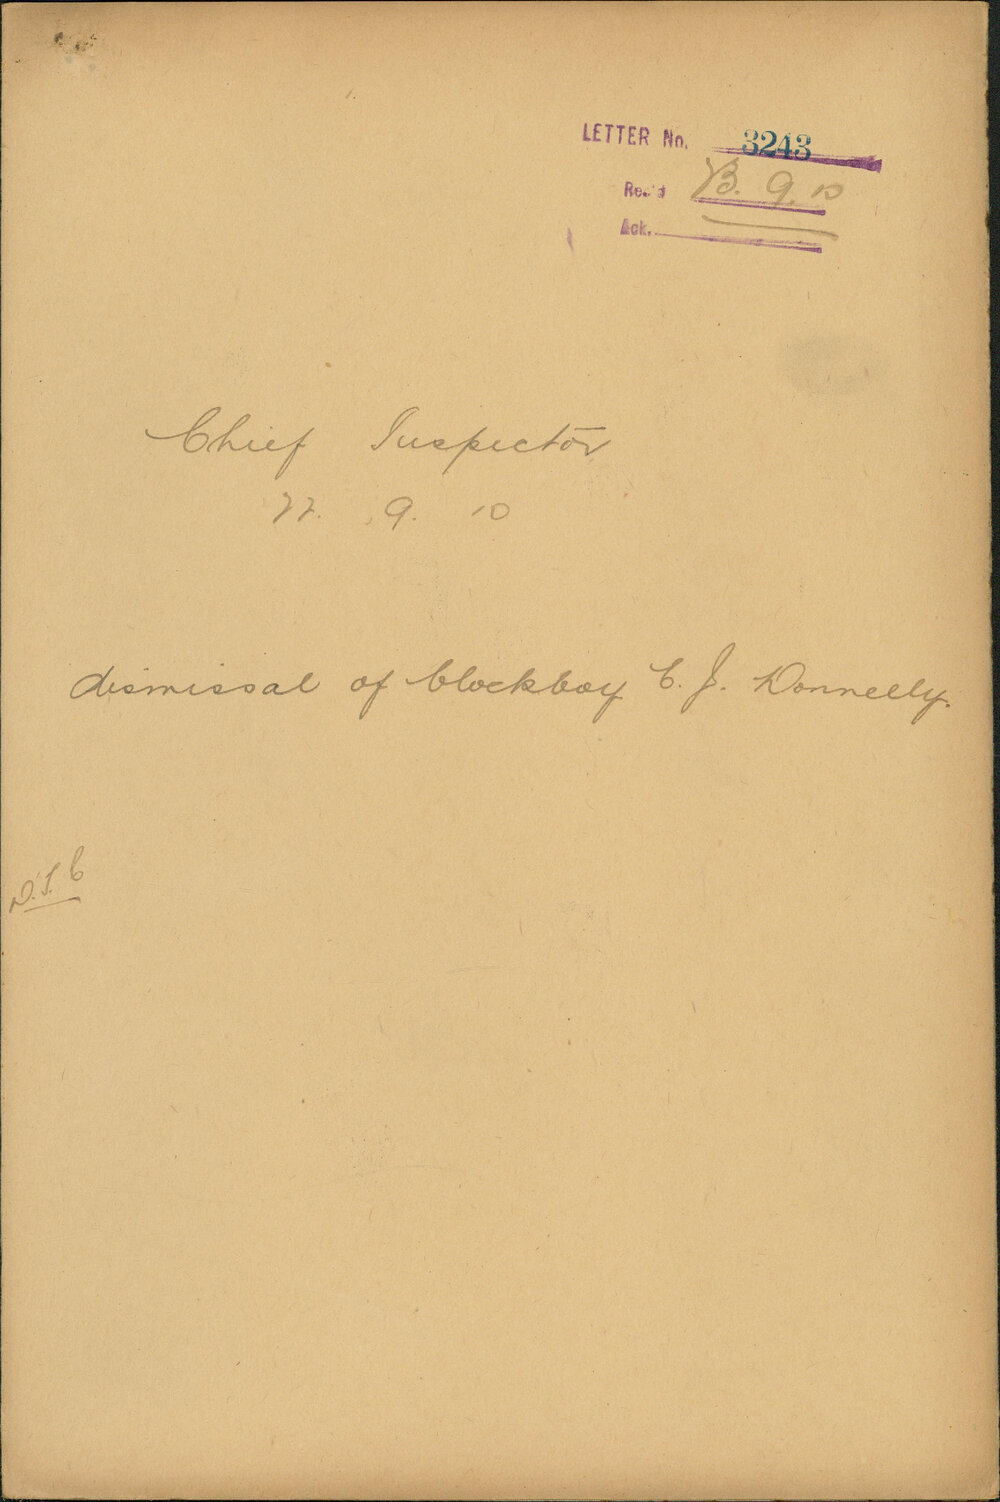 LETTER No. 3243
Rec'd 23. 9. 10
Ack.
Chief Inspector
22. 9. 10
dismissal of blockboy C. J. Donnelly.